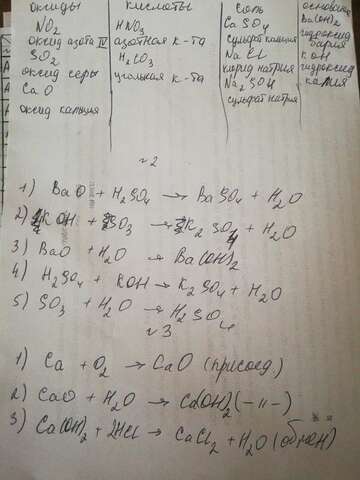 оксиды кислоты соль основания
NO2 HNO3 CaSO4 Ba(OH)2
оксид азота IV азотная к-та сульфат кальция гидроксид бария
SO2 H2CO3 NaCl KOH
оксид серы угольная к-та хлорид натрия гидроксид калия
CaO Na2SO4
оксид кальция сульфат натрия
№2
1) BaO + H2SO4 → BaSO4 + H2O
2) KOH + SO3 → K2SO4 + H2O
3) BaO + H2O → Ba(OH)2
4) H2SO4 + KOH → K2SO4 + H2O
5) SO3 + H2O → H2SO4
№3
1) Ca + O2 → CaO (присоед)
2) CaO + H2O → Ca(OH)2 (-11-)
3) Ca(OH)2 + 2HCl → CaCl2 + H2O (обмен)